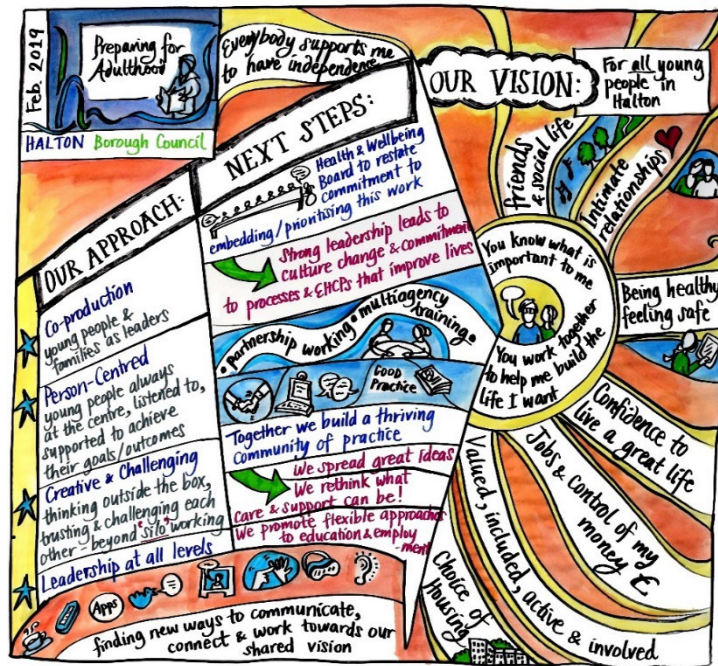 Feb. 2019
Preparing for
Adulthood
HALTON Borough Council
Everybody supports me
to have independence
OUR APPROACH:
Co-production
young people &
families as leaders
Person-Centred
young people always
at the centre, listened to,
supported to achieve
their goals/outcomes
Creative & Challenging
thinking outside the box,
trusting & challenging each
other - beyond 'silo' working
Leadership at all levels
NEXT STEPS:
Health & Wellbeing
Board to restate
commitment to
embedding/prioritising this work
Strong leadership leads to
culture change & commitment
to processes & EHCPs that improve lives
partnership working • multiagency
training •
GOOD
Practice
Together we build a thriving
community of practice
We spread great ideas
We rethink what
care & support can be!
We promote flexible approaches
to education & employ
-ment
Apps
finding new ways to communicate,
connect & work towards our
shared vision
OUR VISION:
For all young
people in
Halton
friends
& social life
Intimate
relationships
You know what is
important to me
You work together
to help me build the
life I want
Being healthy
feeling safe
Confidence to
live a great life
Jobs & control of my
money £
Valued, included, active & involved
Choice of
Housing